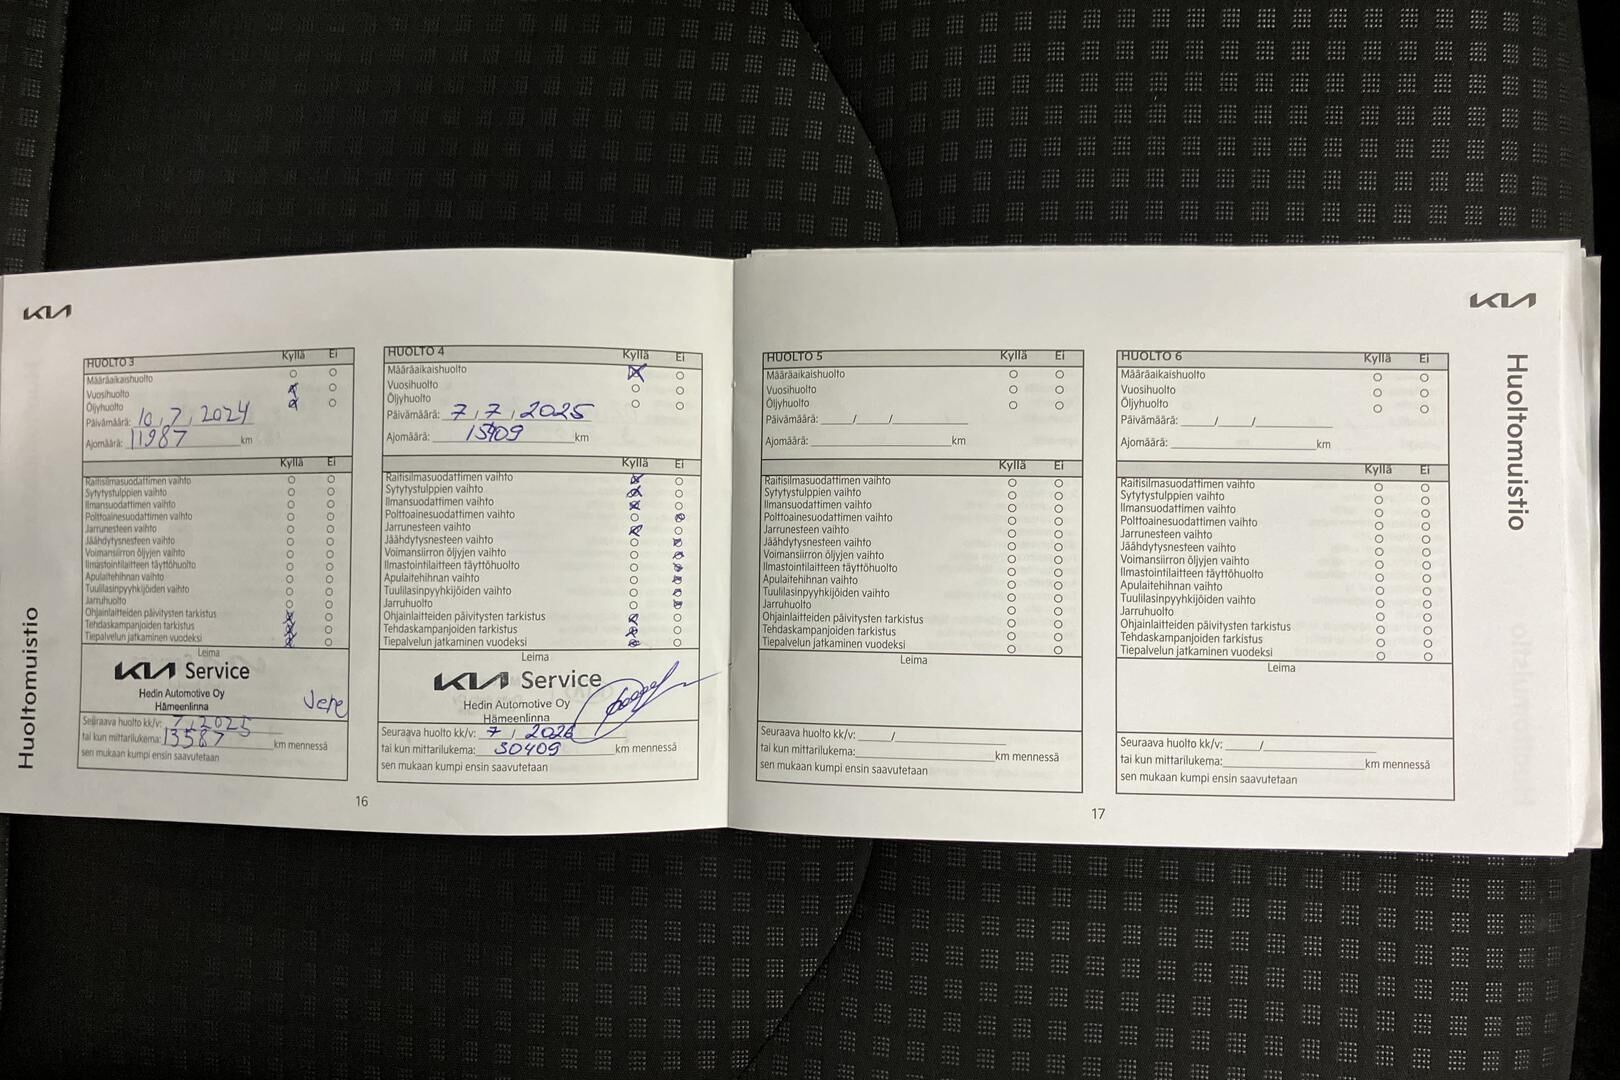 KIA
Huoltomuistio
HUOLTO 3 Kyllä Ei
Määräaikaishuolto
Vuosihuolto
Öljyhuolto
Päivämäärä: 10 / 7 / 2024
Ajomäärä: 11987 km
Kyllä Ei
Raitisilmasuodattimen vaihto
Sytytystulppien vaihto
Ilmansuodattimen vaihto
Polttoainesuodattimen vaihto
Jarrunesteen vaihto
Jäähdytysnesteen vaihto
Voimansiirron öljyjen vaihto
Ilmastointilaitteen täyttöhuolto
Apulaitehihnan vaihto
Tuulilasinpyyhkijöiden vaihto
Jarruhuolto
Ohjainlaitteiden päivitysten tarkistus
Tehdaskampanjoiden tarkistus
Tiepalvelun jatkaminen vuodeksi
Leima
KIA Service
Hedin Automotive Oy
Hämeenlinna
Seuraava huolto kk/v: 7 / 2025
tai kun mittarilukema: 13587 km mennessä
sen mukaan kumpi ensin saavutetaan
HUOLTO 4 Kyllä Ei
Määräaikaishuolto
Vuosihuolto
Öljyhuolto
Päivämäärä: 7 / 7 / 2025
Ajomäärä: 15409 km
Kyllä Ei
Raitisilmasuodattimen vaihto
Sytytystulppien vaihto
Ilmansuodattimen vaihto
Polttoainesuodattimen vaihto
Jarrunesteen vaihto
Jäähdytysnesteen vaihto
Voimansiirron öljyjen vaihto
Ilmastointilaitteen täyttöhuolto
Apulaitehihnan vaihto
Tuulilasinpyyhkijöiden vaihto
Jarruhuolto
Ohjainlaitteiden päivitysten tarkistus
Tehdaskampanjoiden tarkistus
Tiepalvelun jatkaminen vuodeksi
Leima
KIA Service
Hedin Automotive Oy
Hämeenlinna
Seuraava huolto kk/v: 7 / 2026
tai kun mittarilukema: 30409 km mennessä
sen mukaan kumpi ensin saavutetaan
16
HUOLTO 5 Kyllä Ei
Määräaikaishuolto
Vuosihuolto
Öljyhuolto
Päivämäärä: / /
Ajomäärä: km
Kyllä Ei
Raitisilmasuodattimen vaihto
Sytytystulppien vaihto
Ilmansuodattimen vaihto
Polttoainesuodattimen vaihto
Jarrunesteen vaihto
Jäähdytysnesteen vaihto
Voimansiirron öljyjen vaihto
Ilmastointilaitteen täyttöhuolto
Apulaitehihnan vaihto
Tuulilasinpyyhkijöiden vaihto
Jarruhuolto
Ohjainlaitteiden päivitysten tarkistus
Tehdaskampanjoiden tarkistus
Tiepalvelun jatkaminen vuodeksi
Leima
Seuraava huolto kk/v: /
tai kun mittarilukema: km mennessä
sen mukaan kumpi ensin saavutetaan
HUOLTO 6 Kyllä Ei
Määräaikaishuolto
Vuosihuolto
Öljyhuolto
Päivämäärä: / /
Ajomäärä: km
Kyllä Ei
Raitisilmasuodattimen vaihto
Sytytystulppien vaihto
Ilmansuodattimen vaihto
Polttoainesuodattimen vaihto
Jarrunesteen vaihto
Jäähdytysnesteen vaihto
Voimansiirron öljyjen vaihto
Ilmastointilaitteen täyttöhuolto
Apulaitehihnan vaihto
Tuulilasinpyyhkijöiden vaihto
Jarruhuolto
Ohjainlaitteiden päivitysten tarkistus
Tehdaskampanjoiden tarkistus
Tiepalvelun jatkaminen vuodeksi
Leima
Seuraava huolto kk/v: /
tai kun mittarilukema: km mennessä
sen mukaan kumpi ensin saavutetaan
17
KIA
Huoltomuistio